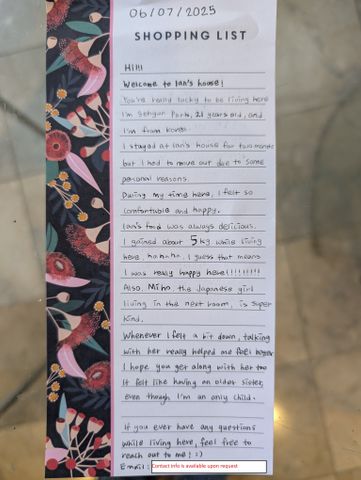 06/07/2025
SHOPPING LIST
Hi!!!
Welcome to Ian's house!
You're really lucky to be living here
I'm Sehyun Park, 21 years old, and
I'm from Korea.
I stayed at Ian's house for two months
but I had to move out due to some
personal reasons.
During my time here, I felt so
comfortable and happy.
Ian's food was always delicious.
I gained about 5kg while living
here, hahaha. I guess that means
I was really happy here!!!!!!!!!
Also, Miho, the Japanese girl
living in the next room, is super
kind.
Whenever I felt a bit down, talking
with her really helped me feel better
I hope you get along with her too
It felt like having an older sister,
even though I'm an only child.
If you ever have any questions
while living here, feel free to
reach out to me! :)
Email: Contact info is available upon request